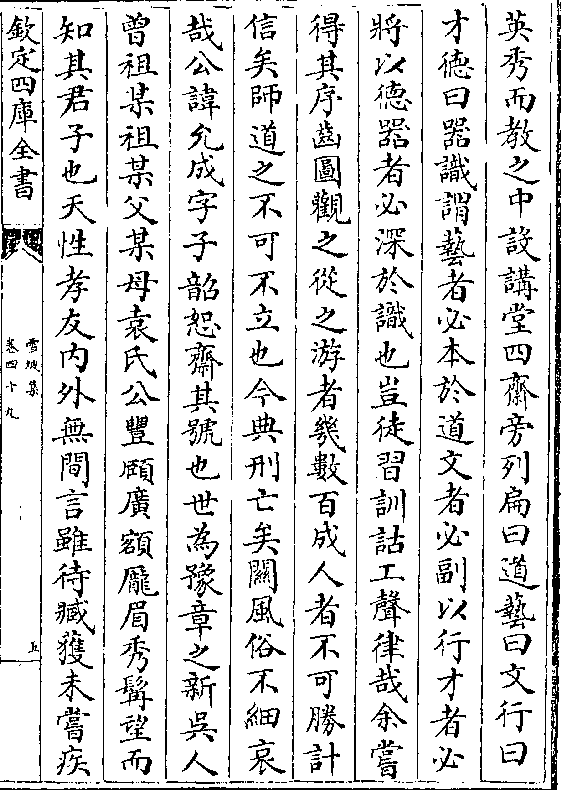 英秀而教之中設講堂四齋旁列扁曰道藝曰文行曰
才德曰器識謂藝者必本於道文者必副以行才者必
將以德器者必深於識也豈徒習訓詁工聲律哉余嘗
得其序齒圖觀之從之游者幾數百成人者不可勝計
信矣師道之不可不立也今典刑亡矣關風俗不細哀
哉公諱允成字子韶恕齋其號也世為豫章之新吳人
曾祖某祖某父某母袁氏公豐頤廣額厖眉秀髯望而
知其君子也天性孝友内外無間言雖待臧獲未嘗疾
欽定四庫全書
雪坡集
卷四十九
五